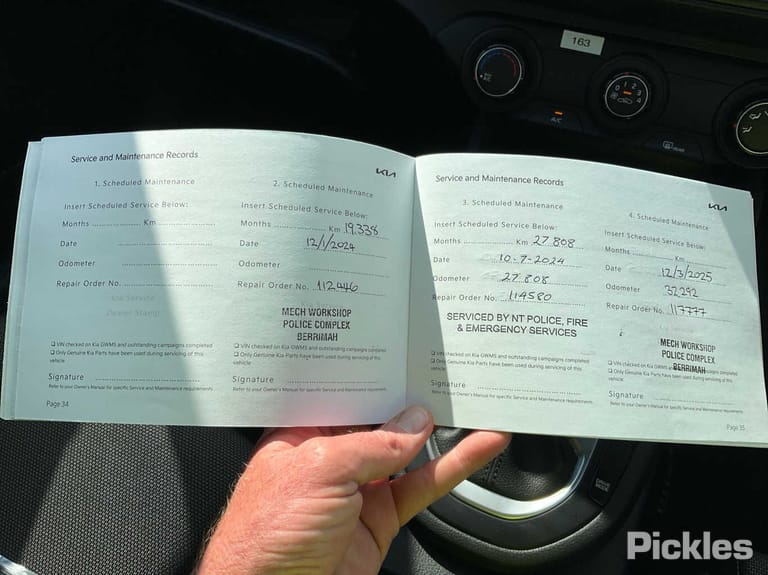 163
0 1 2 3 4
A/C
REAR
Service and Maintenance Records
KIA
1. Scheduled Maintenance
Insert Scheduled Service Below:
Months Km
Date
Odometer
Repair Order No.
Kia Service
Dealer Stamp
VIN checked on Kia GWMS and outstanding campaigns completed
Only Genuine Kia Parts have been used during servicing of this
vehicle
Signature
Refer to your Owner's Manual for specific Service and Maintenance requirements
Page 34
2. Scheduled Maintenance
Insert Scheduled Service Below:
Months Km 19,338
Date 12/1/2024
Odometer
Repair Order No. 112446
Kia Service
MECH WORKSHOP
POLICE COMPLEX
BERRIMAH
VIN checked on Kia GWMS and outstanding campaigns completed
Only Genuine Kia Parts have been used during servicing of this
vehicle
Signature
Refer to your Owner's Manual for specific Service and Maintenance requirements
Service and Maintenance Records
KIA
3. Scheduled Maintenance
Insert Scheduled Service Below:
Months Km 27,808
Date 10-7-2024
Odometer 27,808
Repair Order No. 114580
SERVICED BY NT POLICE, FIRE
& EMERGENCY SERVICES
VIN checked on Kia GWMS and outstanding campaigns completed
Only Genuine Kia Parts have been used during servicing of this
vehicle
Signature
Refer to your Owner's Manual for specific Service and Maintenance requirements
4. Scheduled Maintenance
Insert Scheduled Service Below:
Months Km
Date 12/3/2025
Odometer 32,292
Repair Order No. 117777
MECH WORKSHOP
POLICE COMPLEX
BERRIMAH
VIN checked on Kia GWMS and outstanding campaigns completed
Only Genuine Kia Parts have been used during servicing of this
vehicle
Signature
Refer to your Owner's Manual for specific Service and Maintenance requirements
Page 35
DRIVE
MODE
Pickles